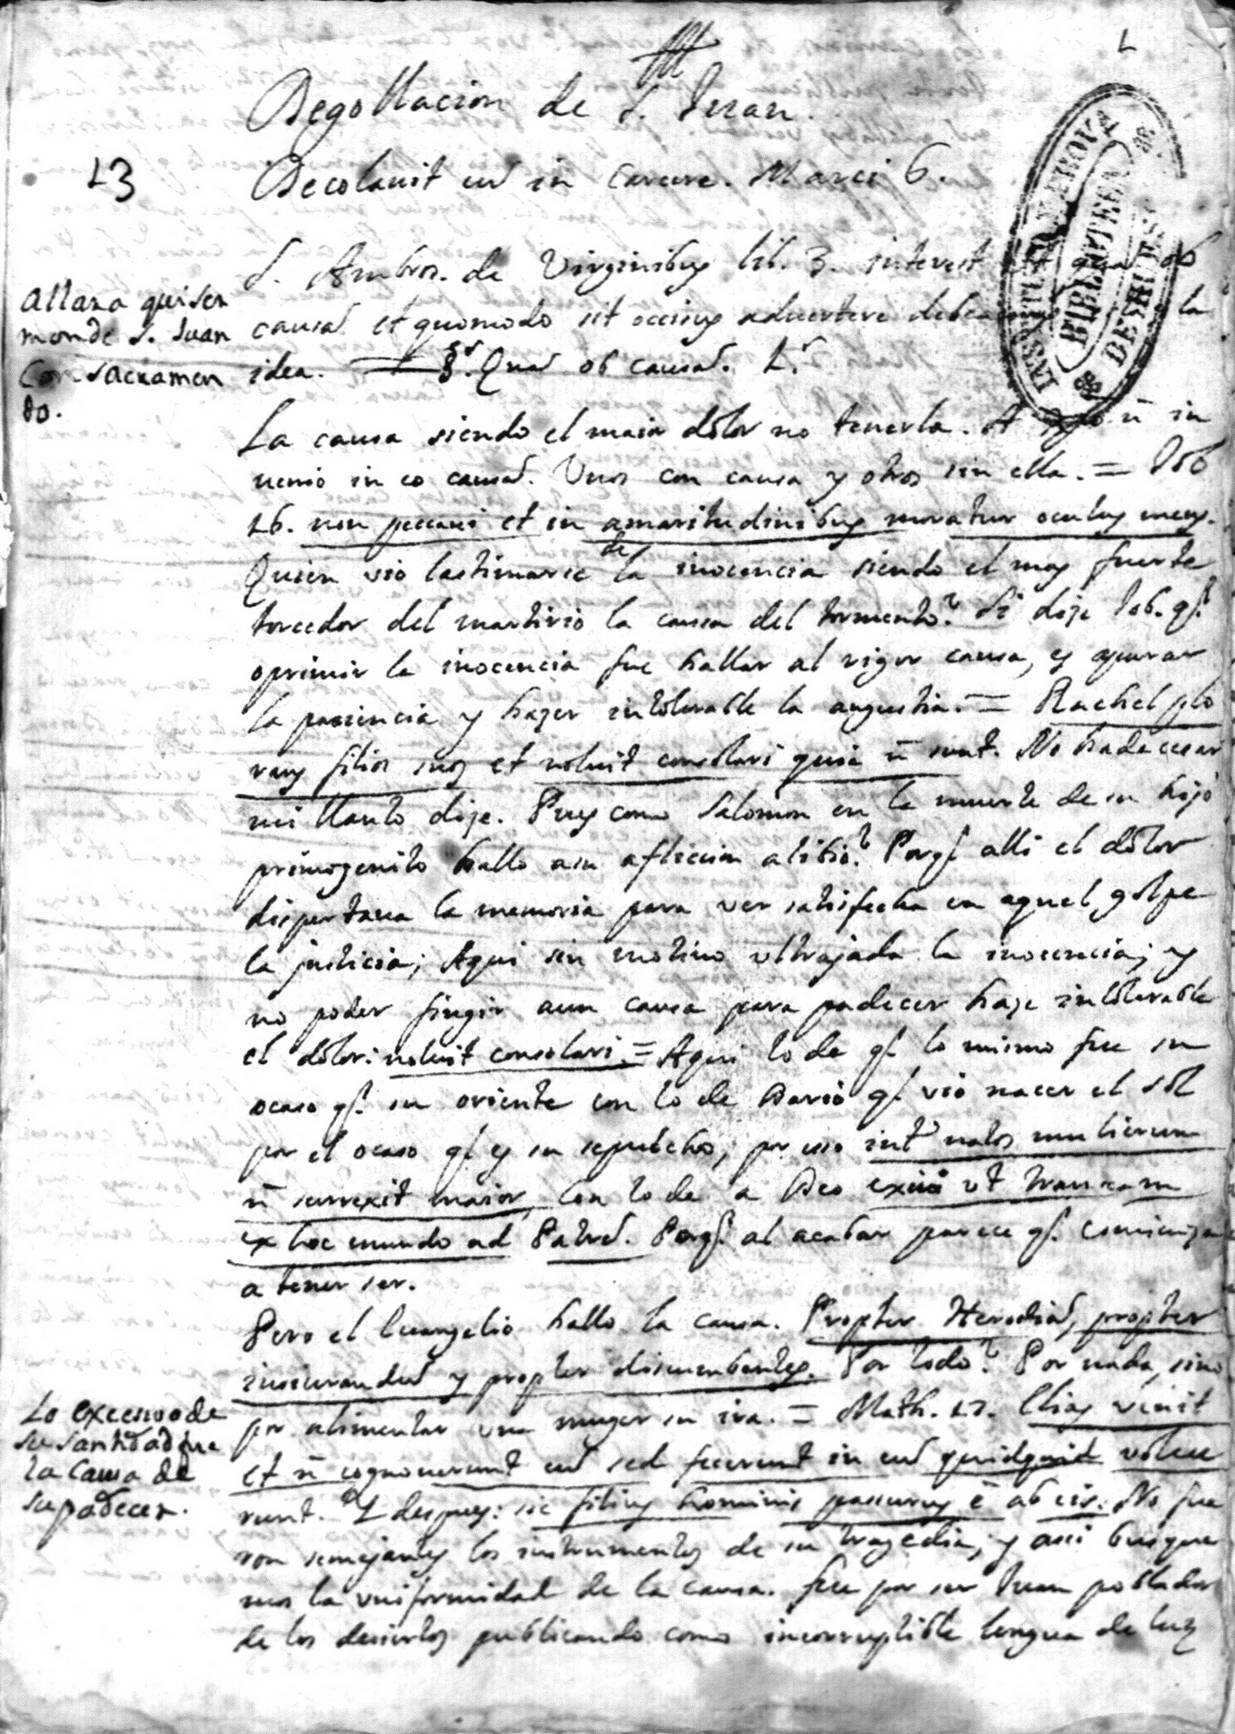 1
Degollacion de S. Juan.
13
Decolauit eũ in Carcere. Marci 6.
INSTITUTO DE JABOVA
BIBLIOTECA
S. Ambros. de Virginibus lib. 3. interest
causã et quomodo sit occisus aduertere debeamus la
idea. §r. Quã ob causã. 1.r
allara qui ser
mon de S. Juan
Con sacramen
to.
La causa siendo el maior dolor no tenerla. ñ in
uenio in eo causã. Unos con causa y otros sin ella. = Job
16. non peccaui et in amaritudinibus moratur oculus meus.
Quien vio lastimarse de la inocencia siendo el mas fuerte
torcedor del martirio la causa del tormento? Si dije Job. q.
oprimir la inocencia fue hallar al rigor causa, y apurar
la paciencia y hazer intolerable la angustia. = Rachel plo
rans filios suos et noluit consolari quia ñ sunt. No ha de cesar
mi llanto dije. Pues como Salomon en la muerte de su hijo
primogenito hallo a su afliccion alibio? Porq. alli el dolor
dispertaua la memoria para ver satisfecha en aquel golpe
la justicia; Aqui sin motiuo vltrajada la inocencia; y
no poder fingir aun causa para padecer haze intolerable
el dolor: noluit consolari. = Aqui lo de q. lo mismo fue su
ocaso q. su oriente con lo de Dario q. vio nacer el sol
por el ocaso q. es su sepulchro, por eso int natos mulierum
ñ surrexit maior, Con lo de a Deo exiui vt transeam
ex hoc mundo ad Patrẽ. Porq. al acabar parece q. comienza
a tener ser.
Pero el Euangelio hallo la causa. Propter Herodiã, propter
iusiurandũ y propter discumbentes. Por todo? Por nada, sino
por alimentar una muger su ira. = Math. 17. Elias venit
et ñ cognouerunt eũ sed fecerunt in eũ quidquid volue
runt. Y despues: sic filius hominis passurus ẽ ab eis. No fue
ron semejantes los instrumentos de su tragedia; y asi busque
mos la vniformidad de la causa. fue por ser Juan poblador
de los desiertos publicando como incorruptible lengua de luz
Lo excesiuo de
su santidad fue
la Causa de
su padecer.